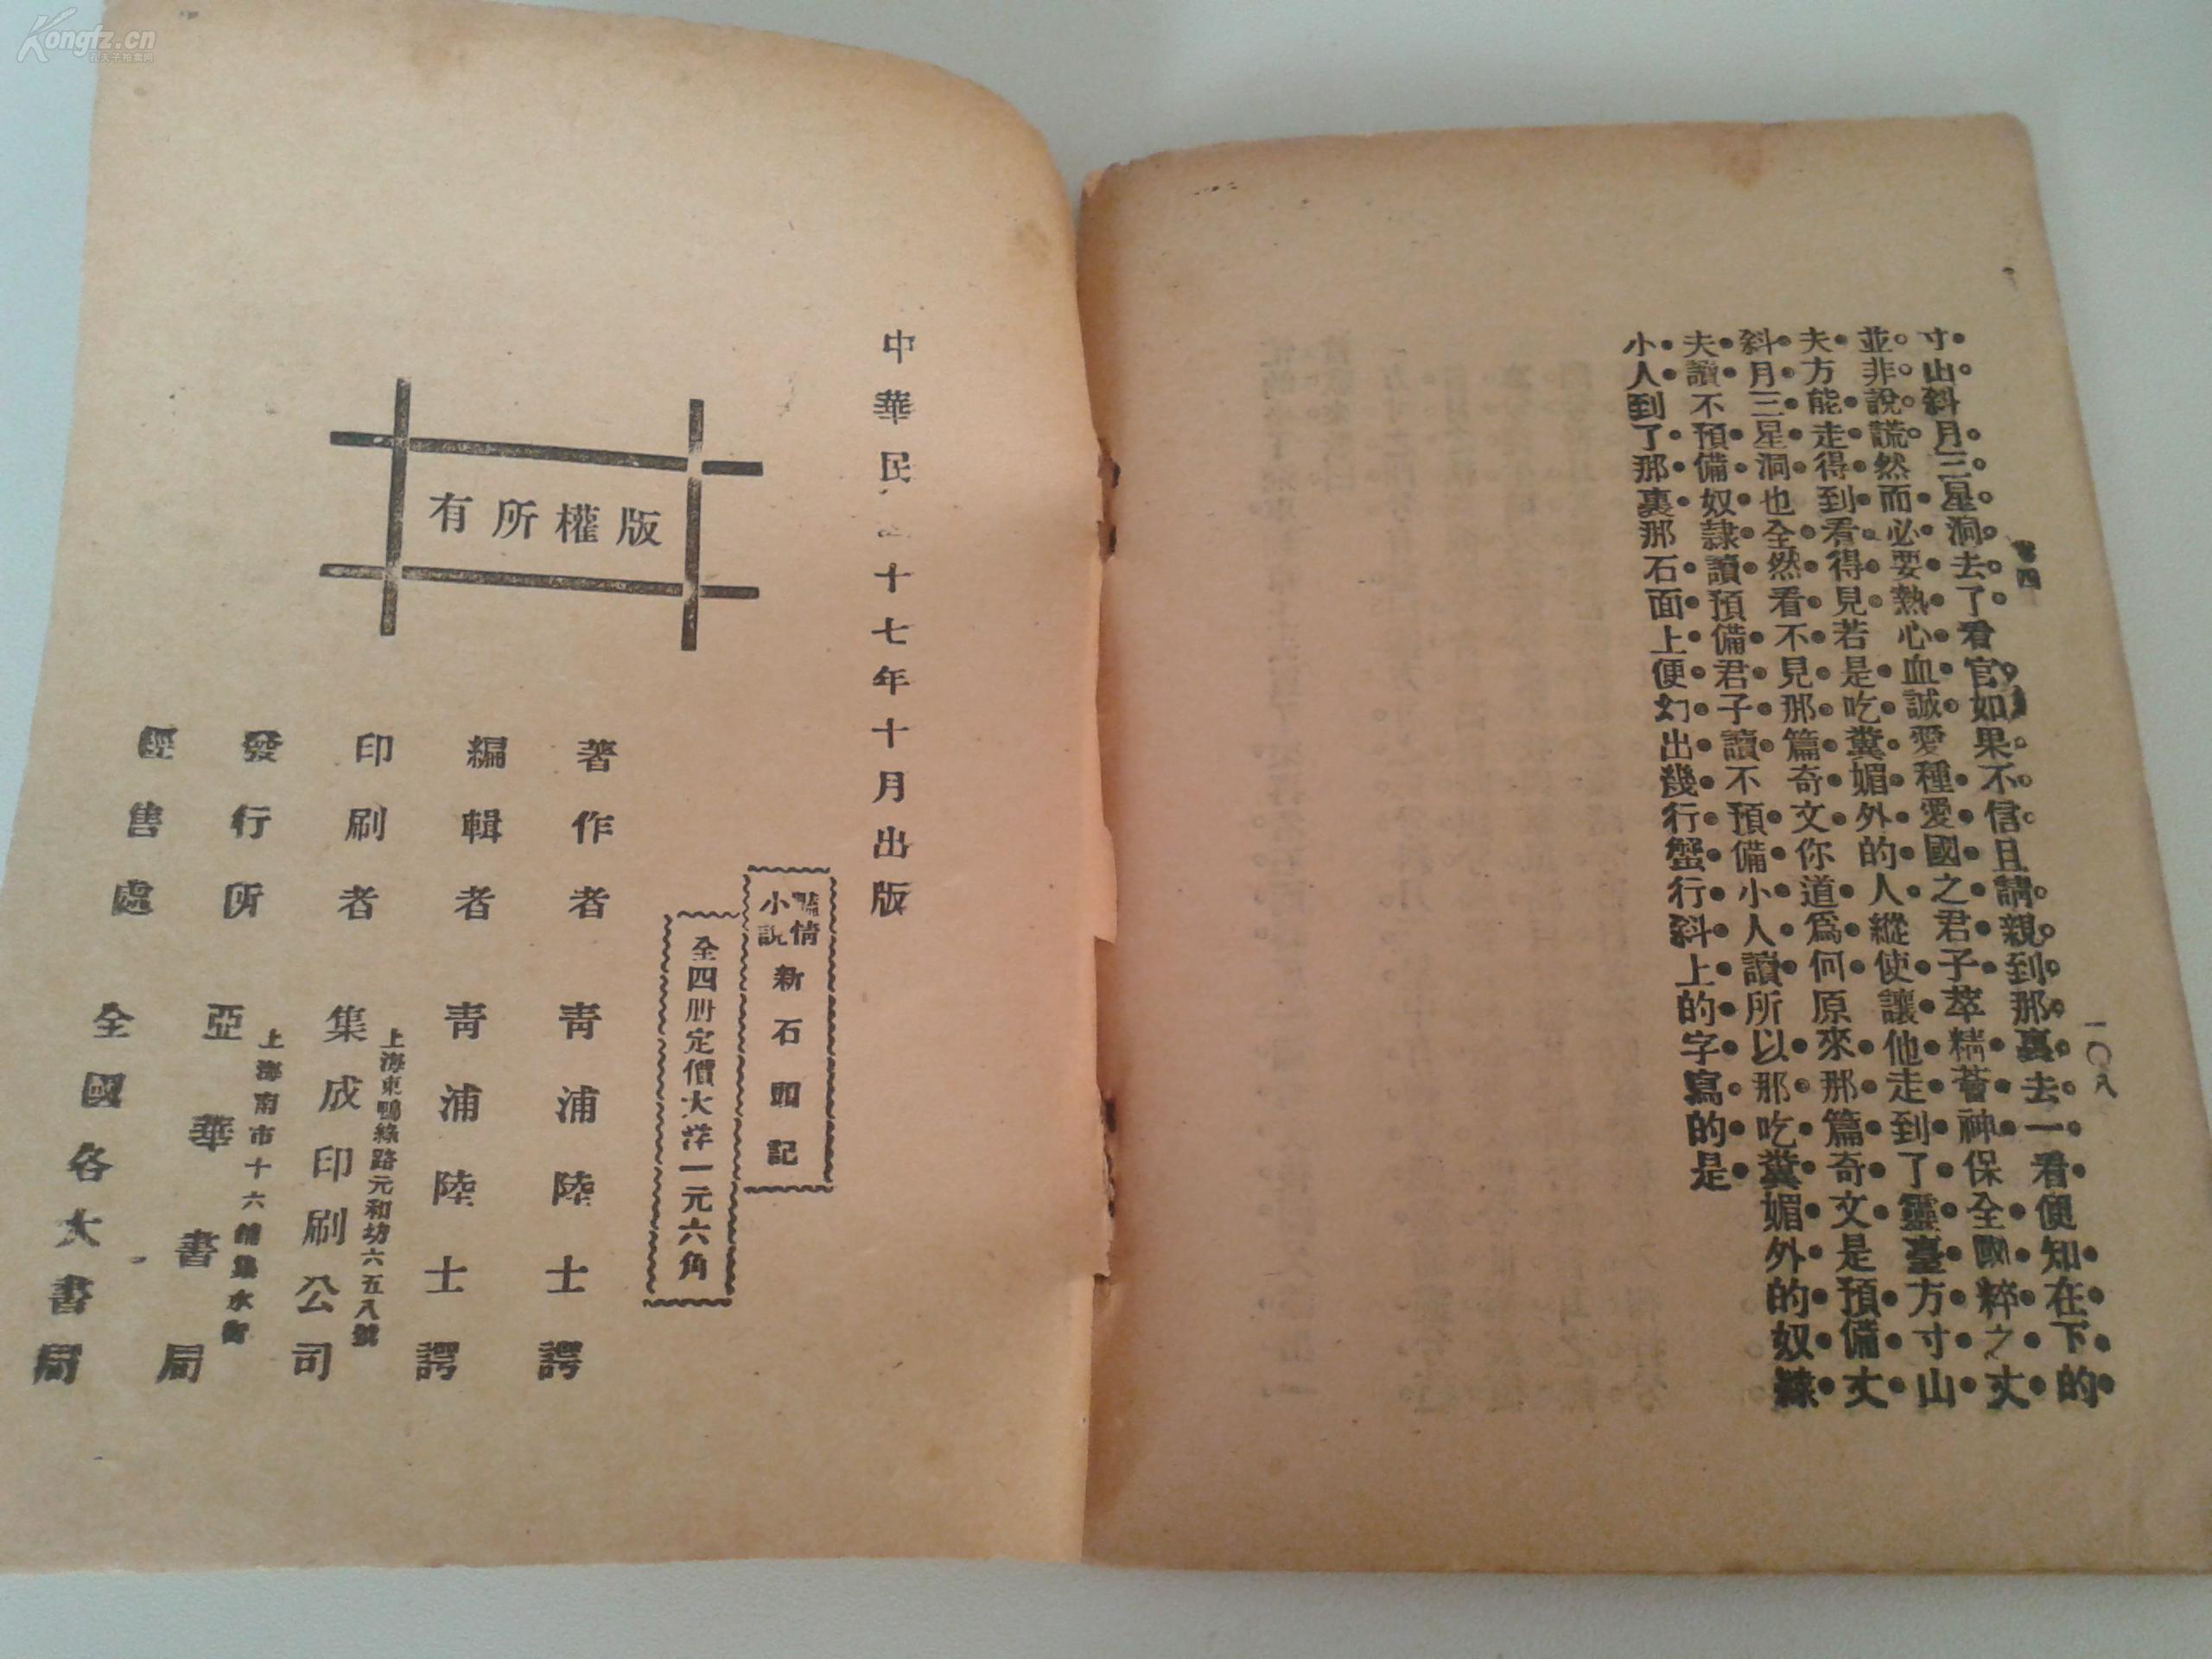 Kongfz.cn
卷四
一〇八
寸山斜月三星洞去了看官如果不信且請親到那裏去一看便知在下的
並非說謊然而必要熱心血誠愛種愛國之君子萃精薈神保全國粹之丈
夫方能走得到看得見若是吃糞媚外的人縱使讓他走到了靈臺方寸山
斜月三星洞也全然看不見那篇奇文你道爲何原來那篇奇文是預備丈
夫讀不預備奴隷讀預備君子讀不預備小人讀所以那吃糞媚外的奴隷
小人到了那裏那石面上便幻出幾行蟹行斜上的字寫的是
中華民國十七年十月出版
艷情小說
新石頭記
全四册定價大洋一元六角
版權所有
著作者 靑浦陸士諤
編輯者 靑浦陸士諤
上海東鴨綠路元和坊六五八號
印刷者 集成印刷公司
上海南市十六舖集水街
發行所 亞華書局
經售處 全國各大書局